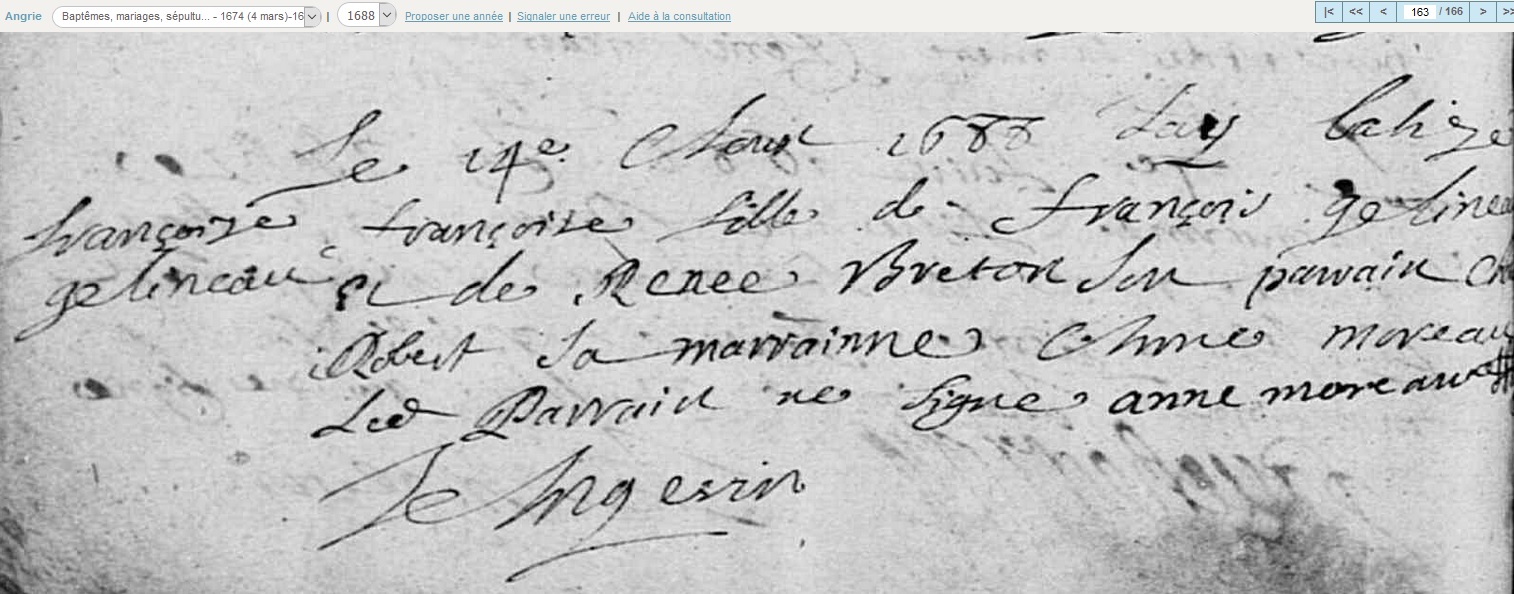 Angrie Baptêmes, mariages, sépultu... - 1674 (4 mars)-16 | 1688 Proposer une année | Signaler une erreur | Aide à la consultation |< << < 163 / 166 > >>
Le 14e Aoust 1688 Jay batize
françoize françoise fille de françois gelineau
gelineau et de Renee Breton son parrain
Robert sa marrainne Anne moreau
Led Parrain ne signe anne moreau